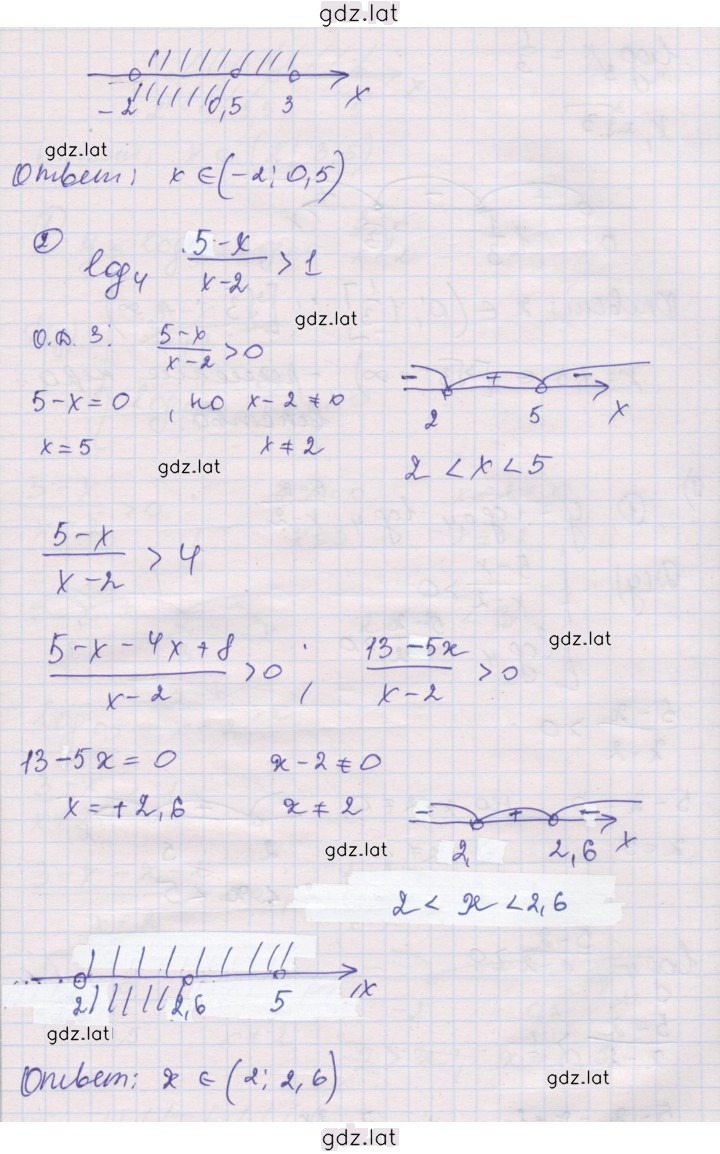 gdz.lat
-2 0,5 3 x
gdz.lat
Ответ: x ∈ (-2; 0,5)
② log₄ (5-x)/(x-2) > 1
gdz.lat
О.Д.З: (5-x)/(x-2) > 0
- + -
2 5 x
5-x=0, но x-2≠0
x=5 x≠2
2 < x < 5
gdz.lat
(5-x)/(x-2) > 4
(5-x-4x+8)/(x-2) > 0 ; (13-5x)/(x-2) > 0
gdz.lat
13-5x=0 x-2≠0
x=+2,6 x≠2
- + -
2 2,6 x
gdz.lat
2 < x < 2,6
2 2,6 5 x
gdz.lat
Ответ: x ∈ (2; 2,6)
gdz.lat
gdz.lat